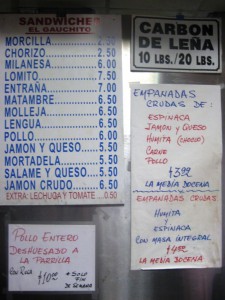 SANDWICHES
EL GAUCHITO
MORCILLA 2.50
CHORIZO 2.50
MILANESA 6.00
LOMITO 7.50
ENTRAÑA 7.00
MATAMBRE 6.50
MOLLEJA 6.50
LENGUA 6.50
POLLO 6.00
JAMON Y QUESO 5.50
MORTADELA 5.50
SALAME Y QUESO 5.50
JAMON CRUDO 6.50
EXTRA: LECHUGA Y TOMATE 0.50
CARBON
DE LEÑA
10 LBS./20 LBS.
EMPANADAS
CRUDAS DE:
ESPINACA
JAMON Y QUESO
HUMITA (CHOCLO)
CARNE
POLLO
LA MEDIA DOCENA
EMPANADAS CRUDAS
HUMITA
Y
ESPINACA
CON MASA INTEGRAL
LA MEDIA DOCENA
POLLO ENTERO
DESHUESADO A
LA PARRILLA
* SOLO
FIN
DE SEMANA